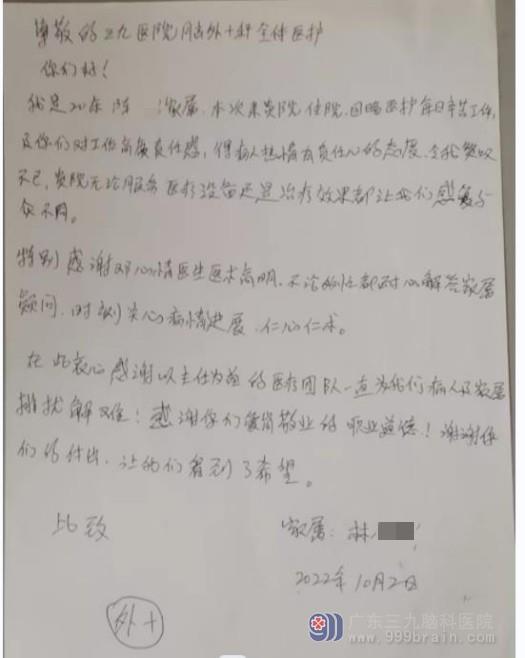 尊敬的三九医院脑外十科全体医护
你们好！
我是20床陈 家属，本次来贵院住院，目睹医护每日辛苦工作，
及你们对工作高度责任感，得病人热情有责任心的态度，令我赞叹
不已，贵院无论服务医疗设备还是治疗效果都让我们感受与
众不同。
特别感谢邓心情医生医术高明，不论如何都耐心解答家属
疑问，时刻关心病情进展，仁心仁术。
在此衷心感谢以主任为首的医疗团队一直为我们病人及家属
排扰解难！感谢你们爱岗敬业的职业道德！谢谢你
们的付出，让我们看到了希望。
此致
家属：林
2022年10月2日
外十
广东三九脑科医院
www.999brain.com